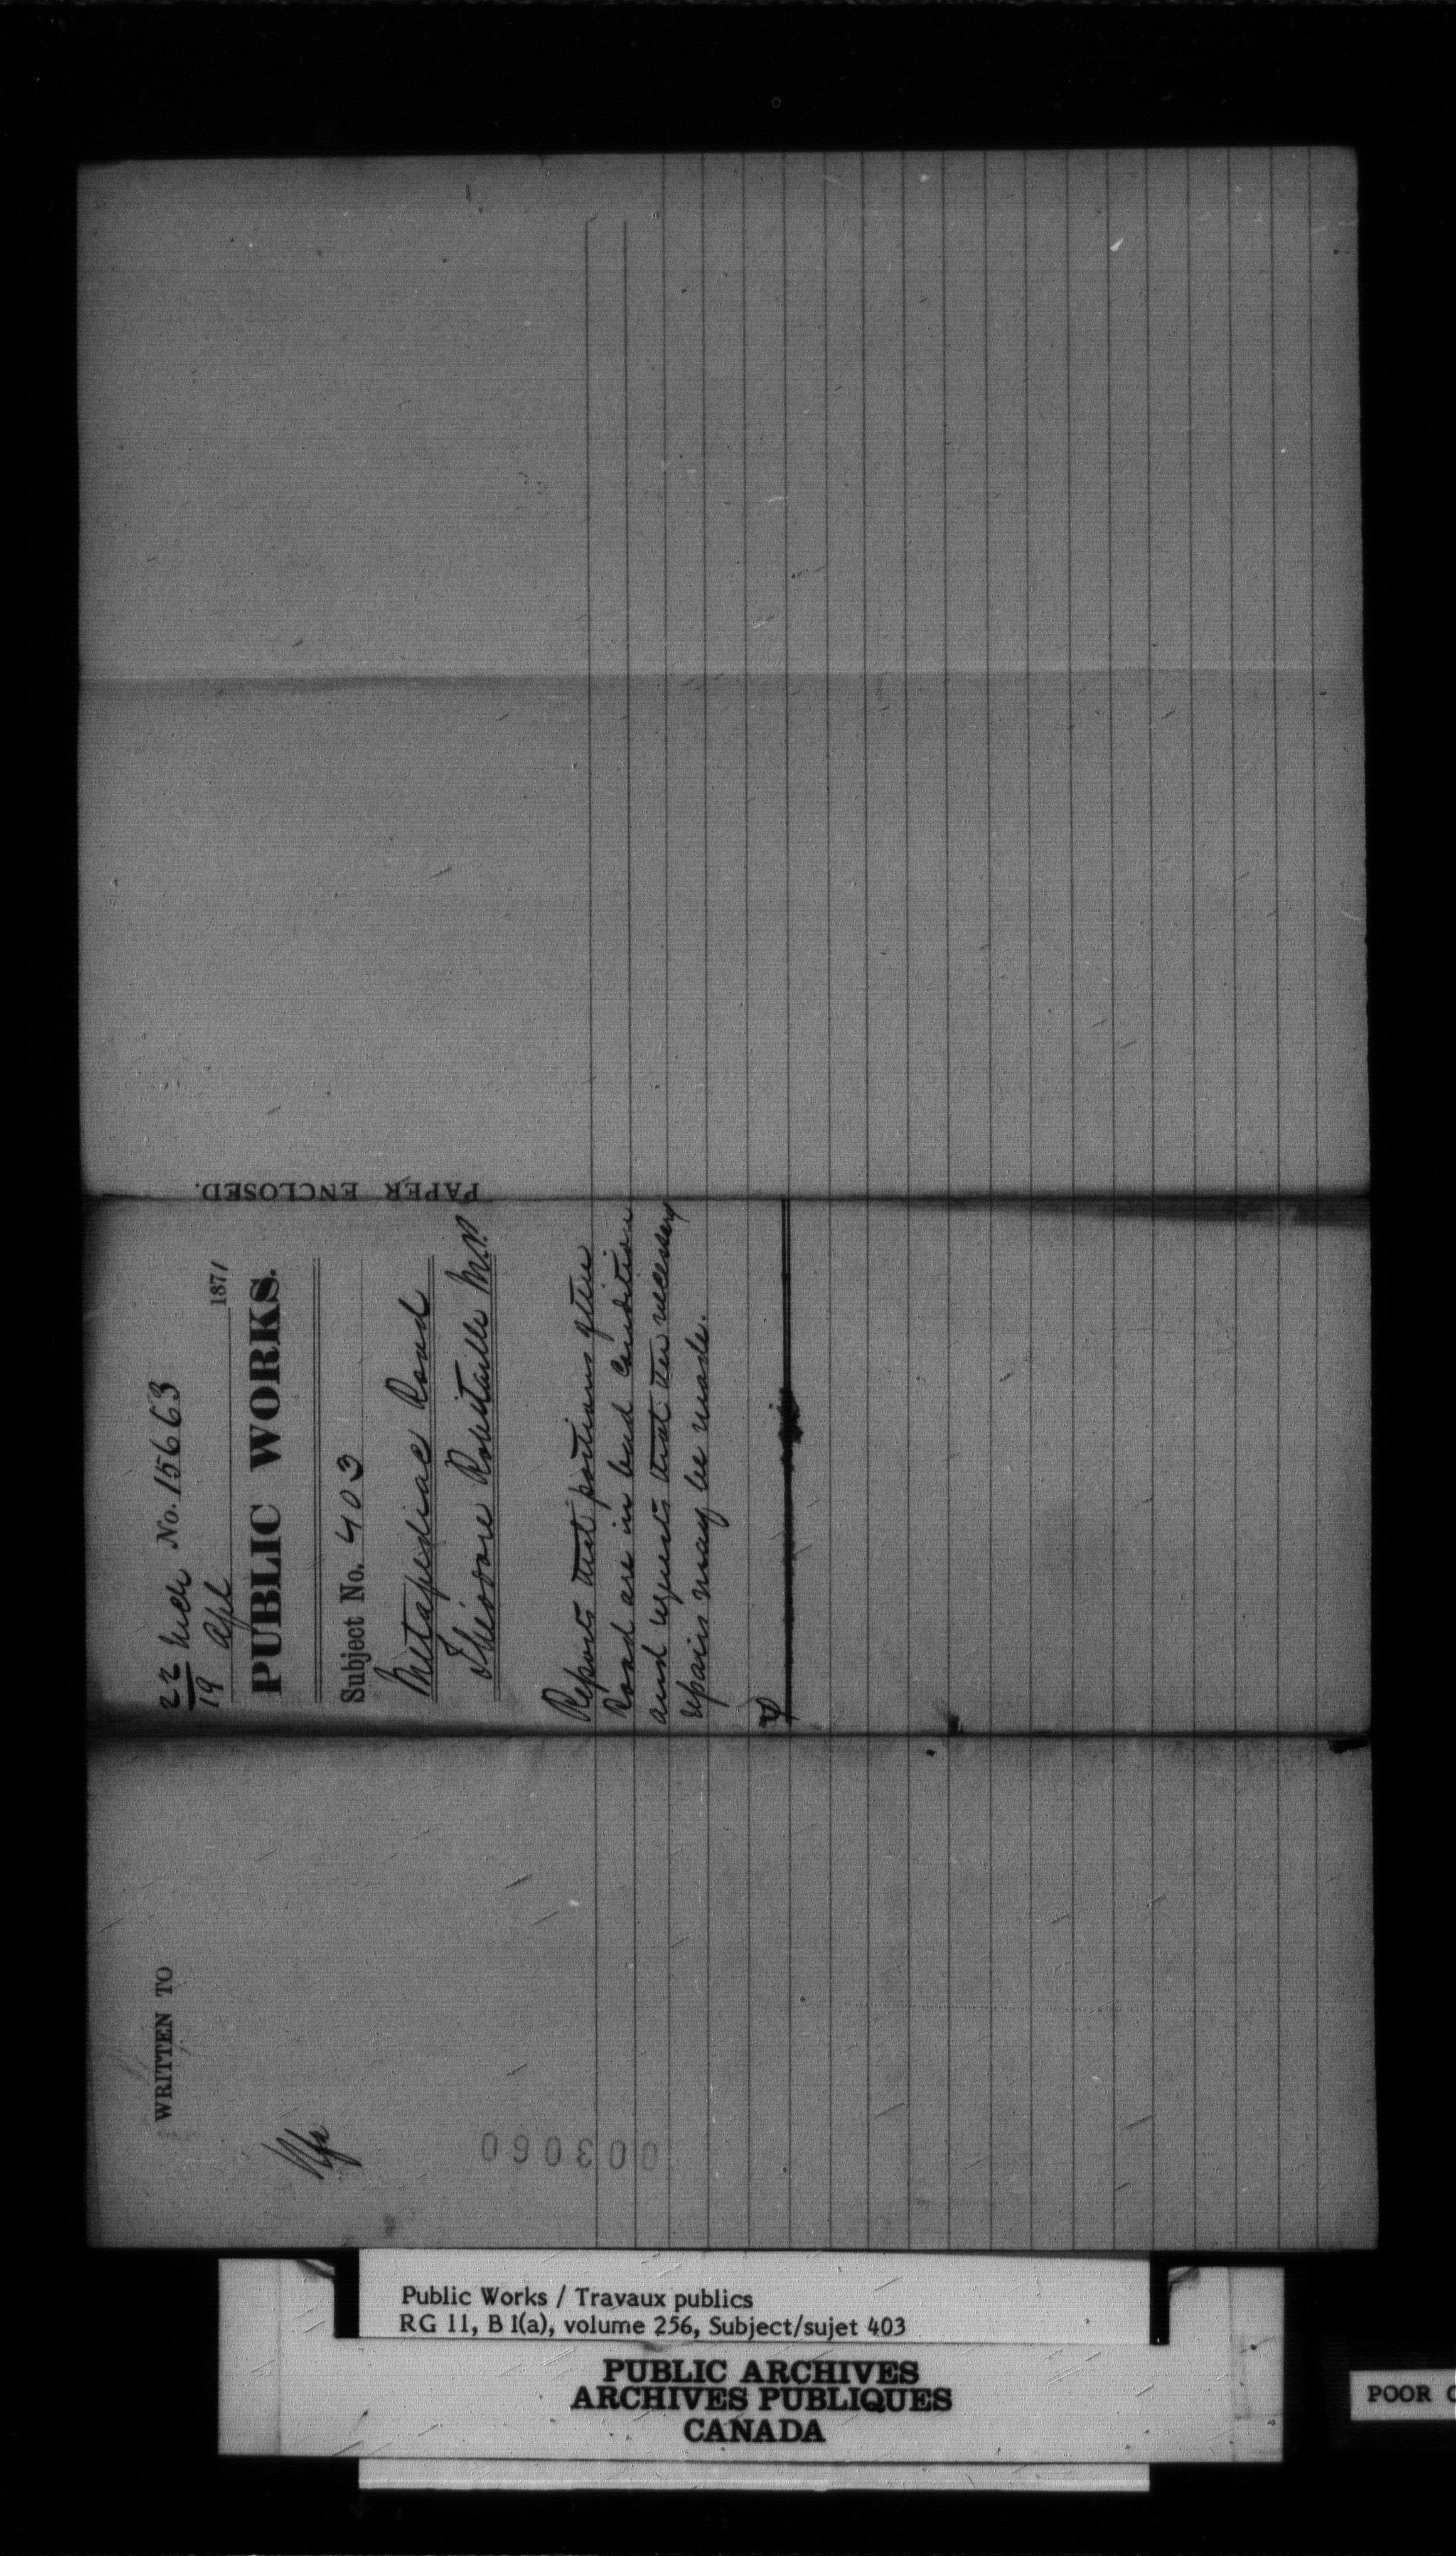 22 Mch No. 15663
19 Apl 1871
PUBLIC WORKS.
Subject No. 403
Metapediac Road
Théodore Robitaille M.P.
Reports that portions of this
Road are in bad condition
and requests that the necessary
repairs may be made.
PAPER ENCLOSED.
WRITTEN TO
003060
Public Works / Travaux publics
RG 11, B 1(a), volume 256, Subject/sujet 403
PUBLIC ARCHIVES
ARCHIVES PUBLIQUES
CANADA
POOR